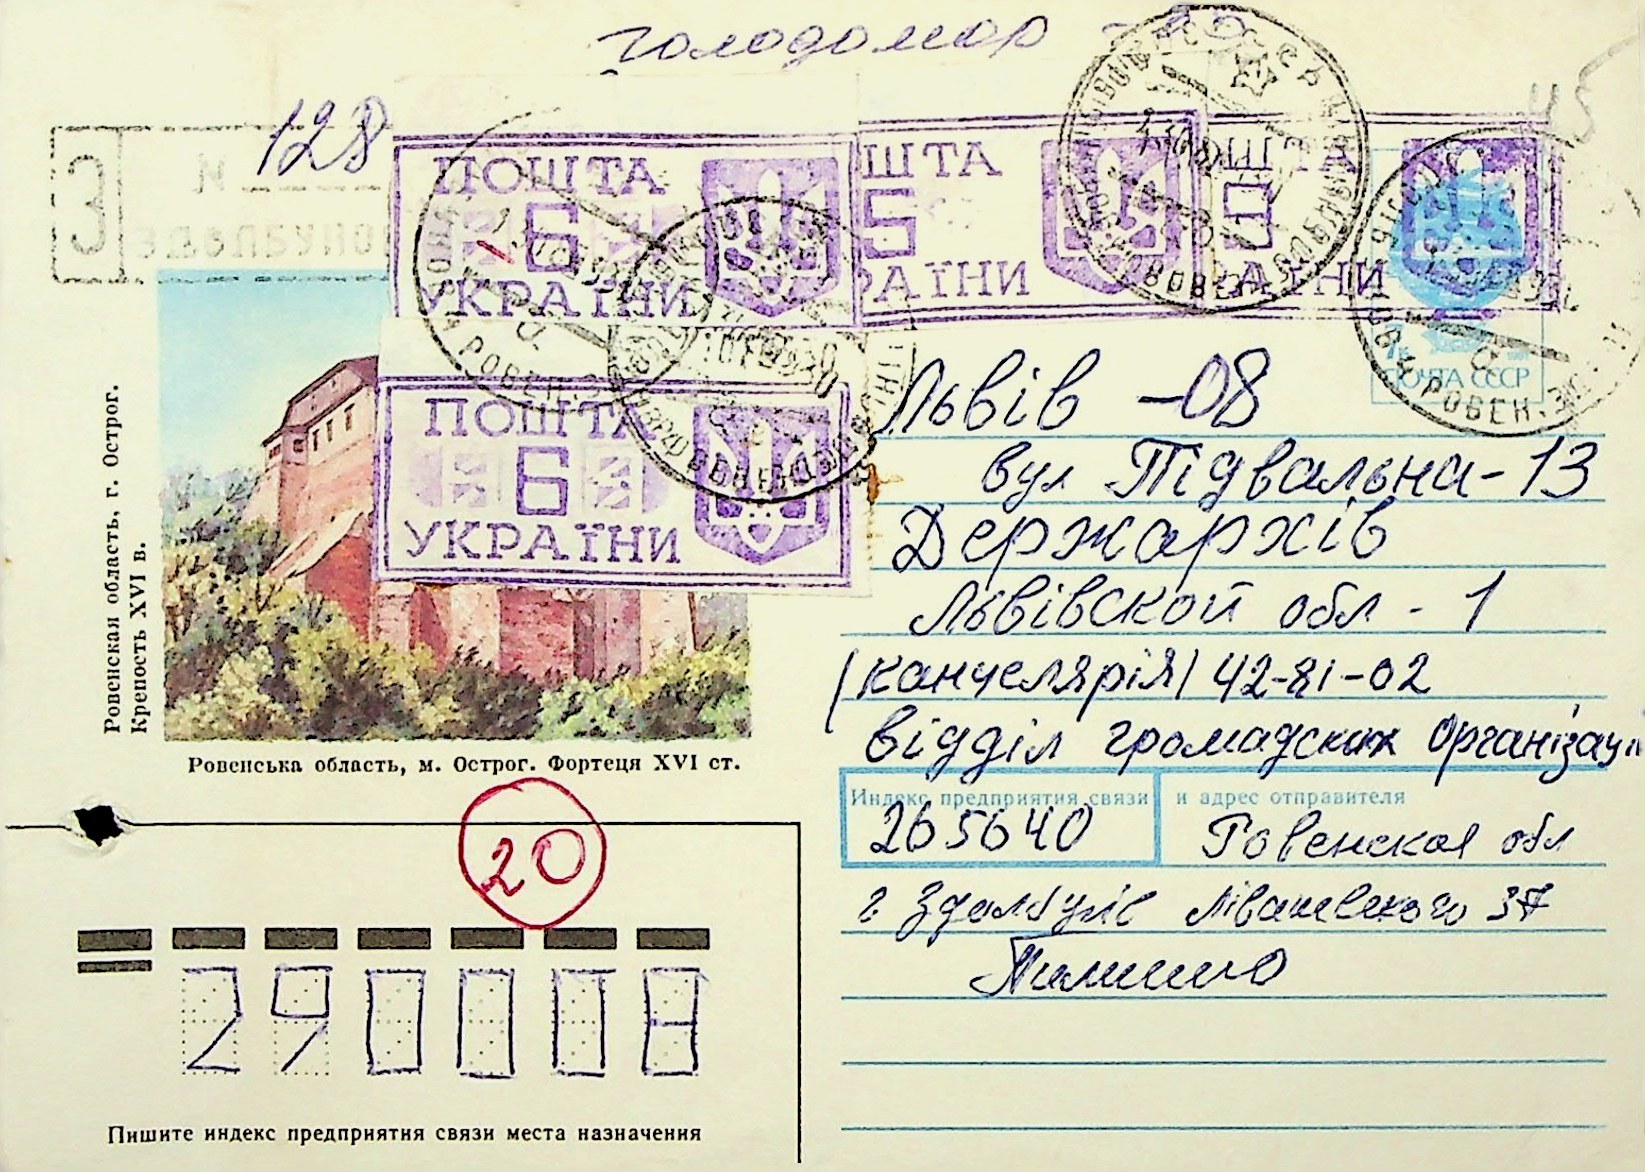 голодомор
45
З
N 128
ПОШТА
6
УКРАЇНИ
ШТА
5
РАЇНИ
ШТА
АЇНИ
7к
1991
ПОЧТА СССР
ПОШТА
6
УКРАЇНИ
Львів -08
вул Підвальна-13
Держархів
Львівской обл - 1
(канчелярія) 42-81-02
відділ громадских Організац
Индекс предприятия связи и адрес отправителя
265640
Ровенская обл
г Здолбунів
37
Ровенская область, г. Острог.
Крепость XVI в.
Ровенська область, м. Острог. Фортеця XVI ст.
20
290008
Пишите индекс предприятия связи места назначения